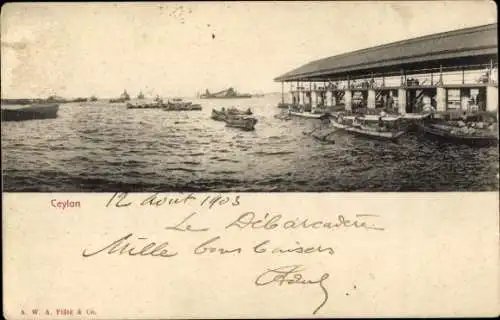 Ceylon
12 Août 1903
Le Débarcadère
Mille bons baisers
A. W. A. Plâté & Co.